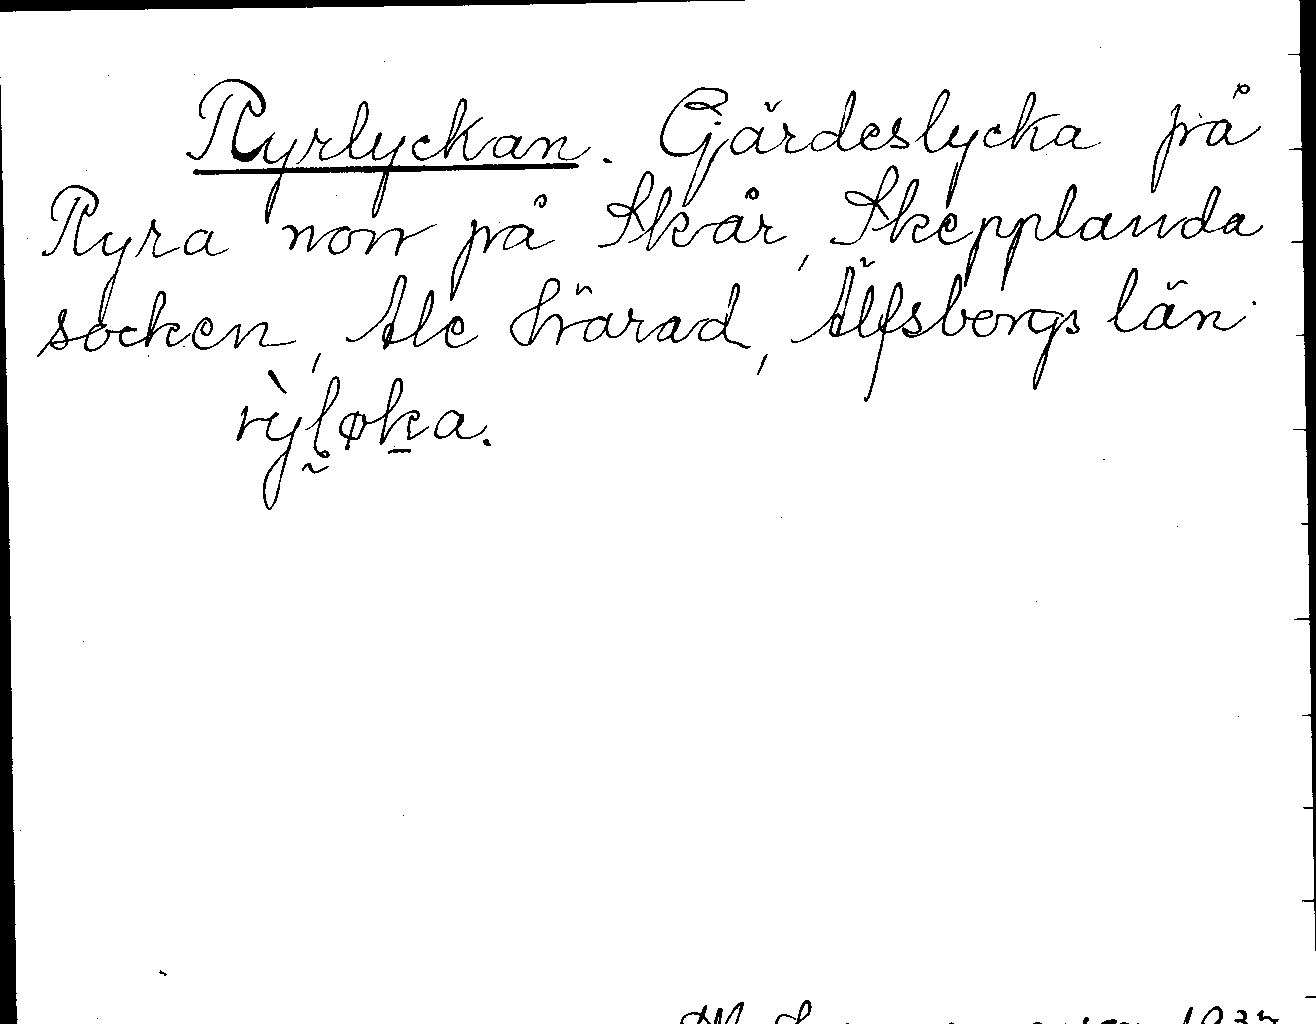 Ryrlyckan. Gjärdeslycka på
Ryra norr på Skår, Skepplanda
socken, Ale härad, Älfsborgs län.
rỳl̰øḵa.